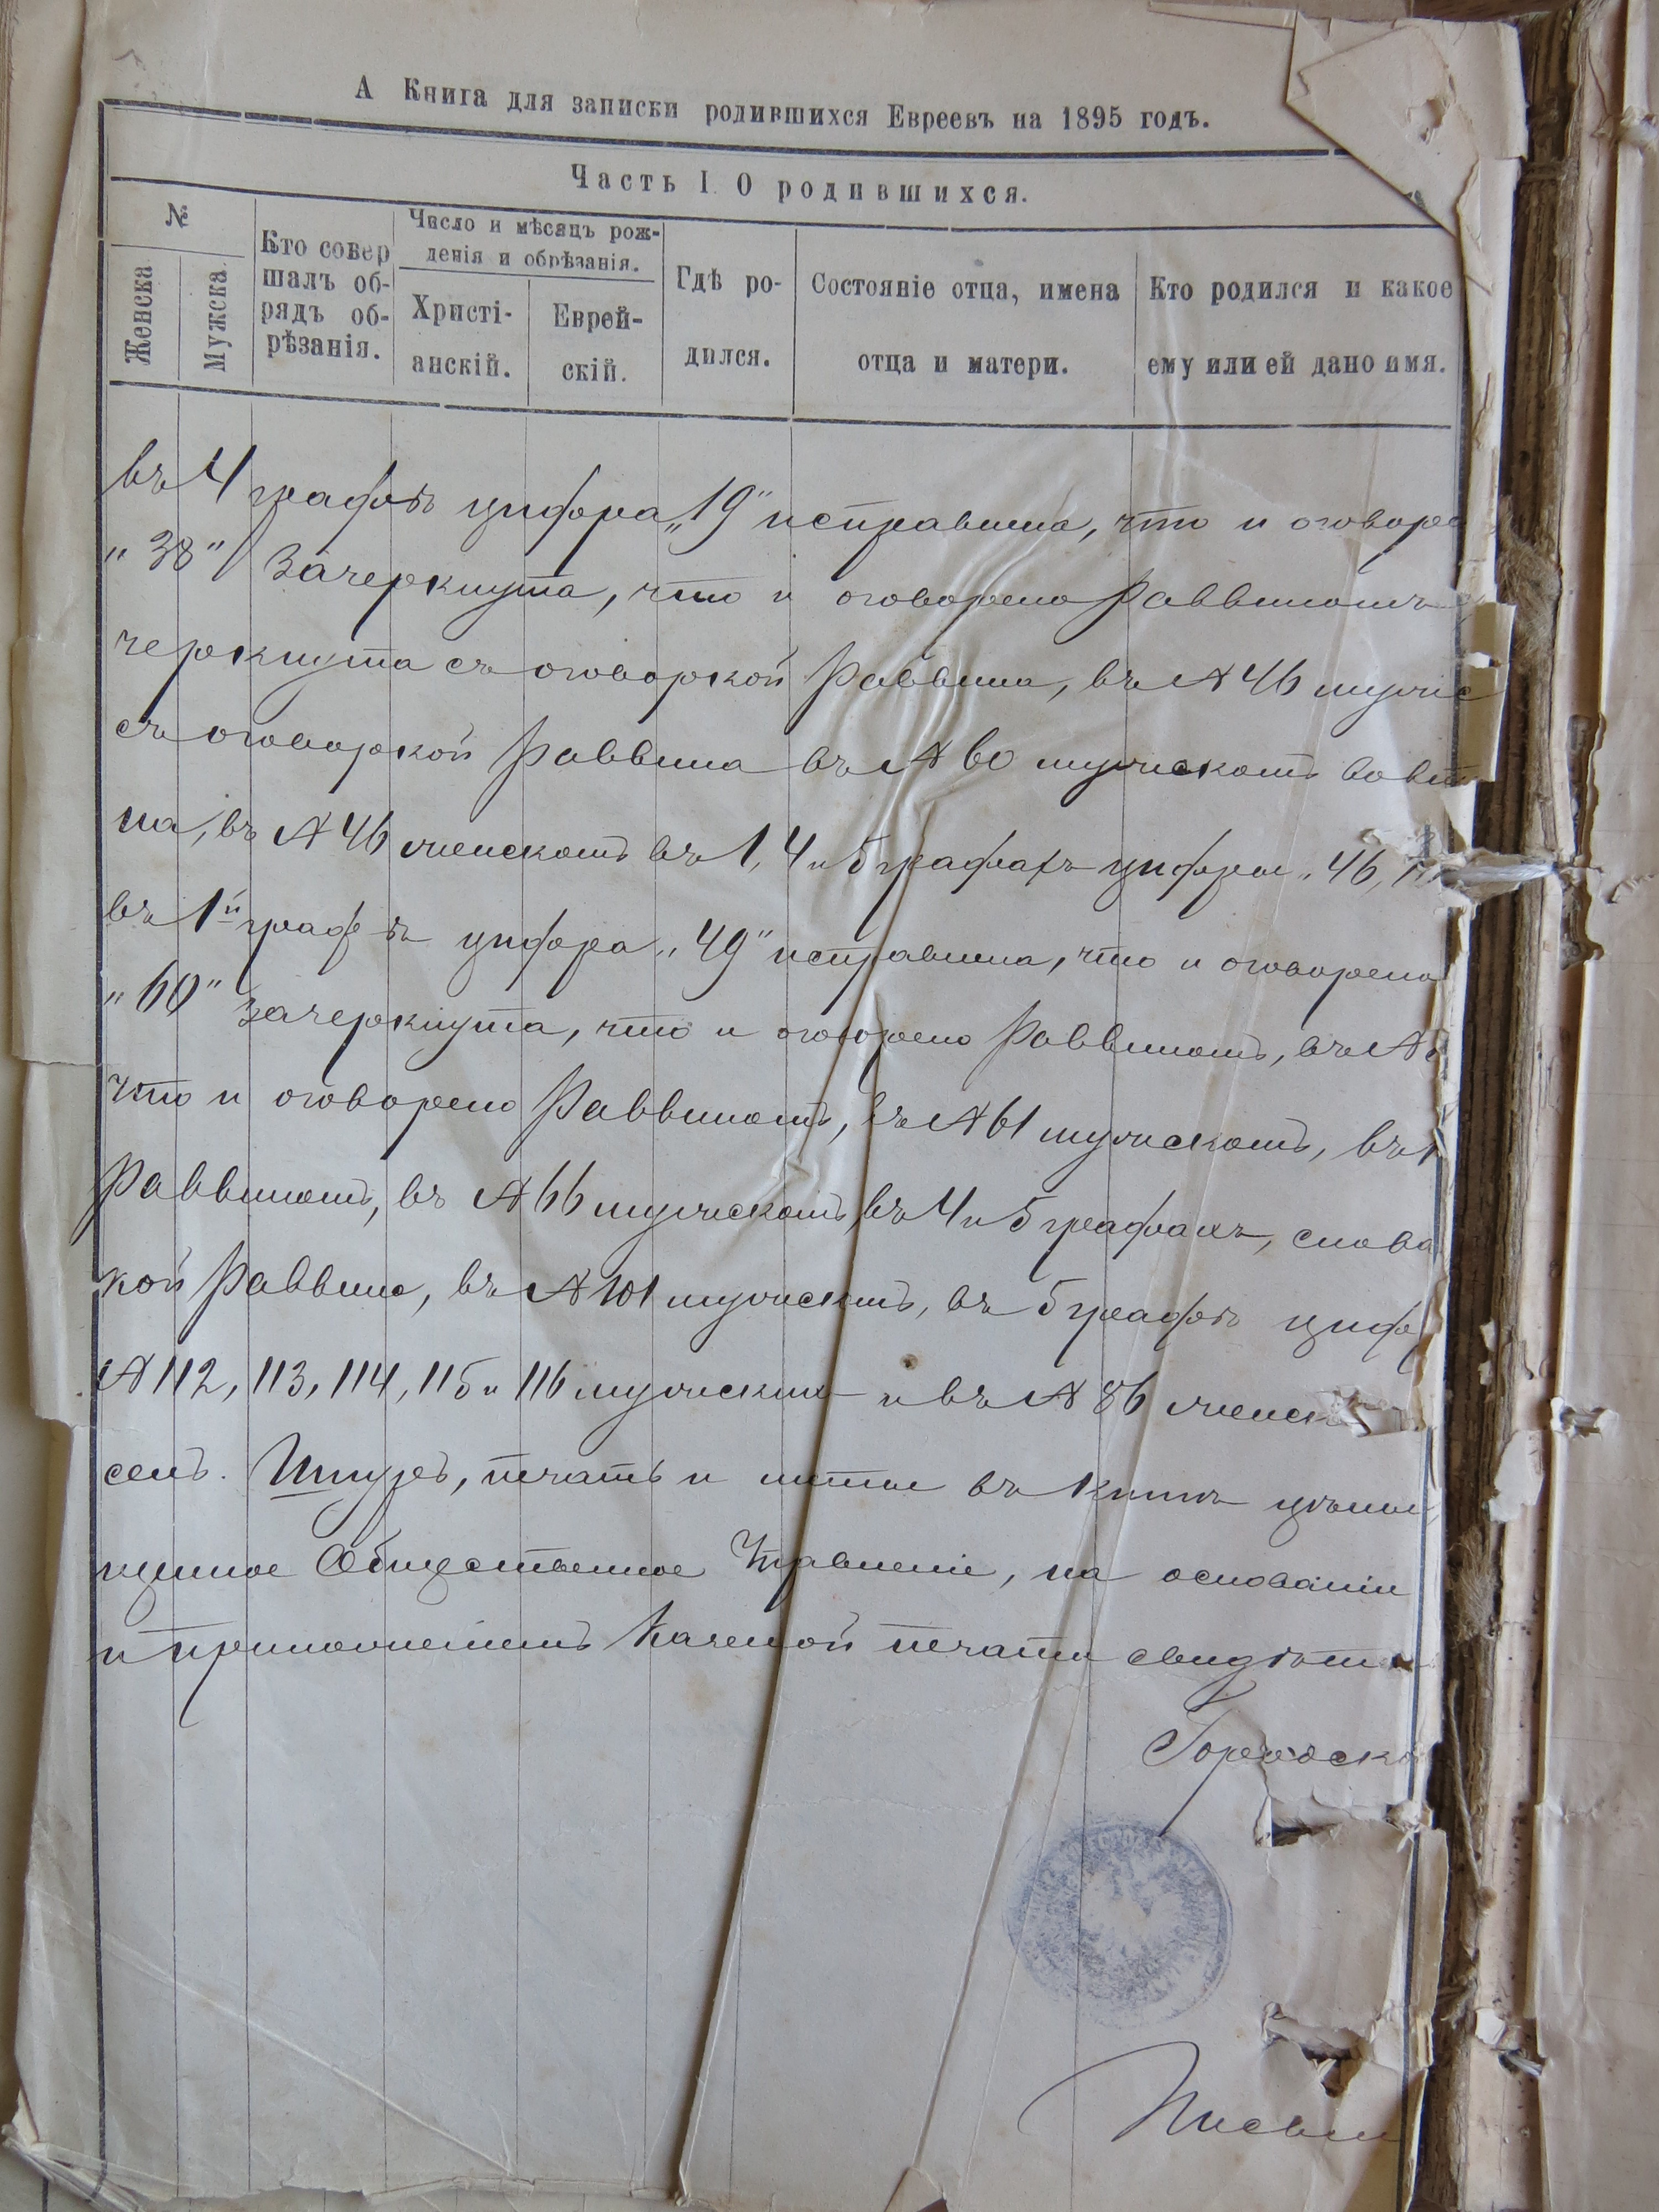 А Книга для записки родившихся Евреевъ на 1895 годъ.
Часть I О родившихся.
№
Женска
Мужска
Кто совер
шалъ об-
рядъ об-
рѣзанія.
Число и мѣсяцъ рож-
денія и обрѣзанія.
Христі-
анскій.
Еврей-
скій.
Гдѣ ро-
дился.
Состояніе отца, имена
отца и матери.
Кто родился и какое
ему или ей дано имя.
въ 4 графѣ цифра „19" исправлена, что и оговоре
„38" зачеркнута, что и оговорено Раввиномъ
черкнута съ оговоркой Раввина, въ № 46 мужс
съ оговоркой Раввина въ № 60 мужскомъ
на, въ № 46 женскомъ въ 1, 4 и 5 графахъ цифры „46,
въ 1й графѣ цифра „49" исправлена, что и оговорено
„60" зачеркнута, что и оговорено Раввиномъ, въ №
что и оговорено Раввиномъ, въ № 61 мужскомъ, въ
Раввиномъ, въ № 66 мужскомъ, въ 4 и 5 графахъ, слова
кой Раввина, въ № 101 мужскомъ, въ 5 графѣ циф
№ 112, 113, 114, 115 и 116 мужскихъ и въ № 86 женск
семъ. Шнуръ, печать и листы въ книгѣ цѣлы
щанское Общественное Управленіе, на основаніи
и приложеніемъ казенной печати свидѣте
Городско
Письм